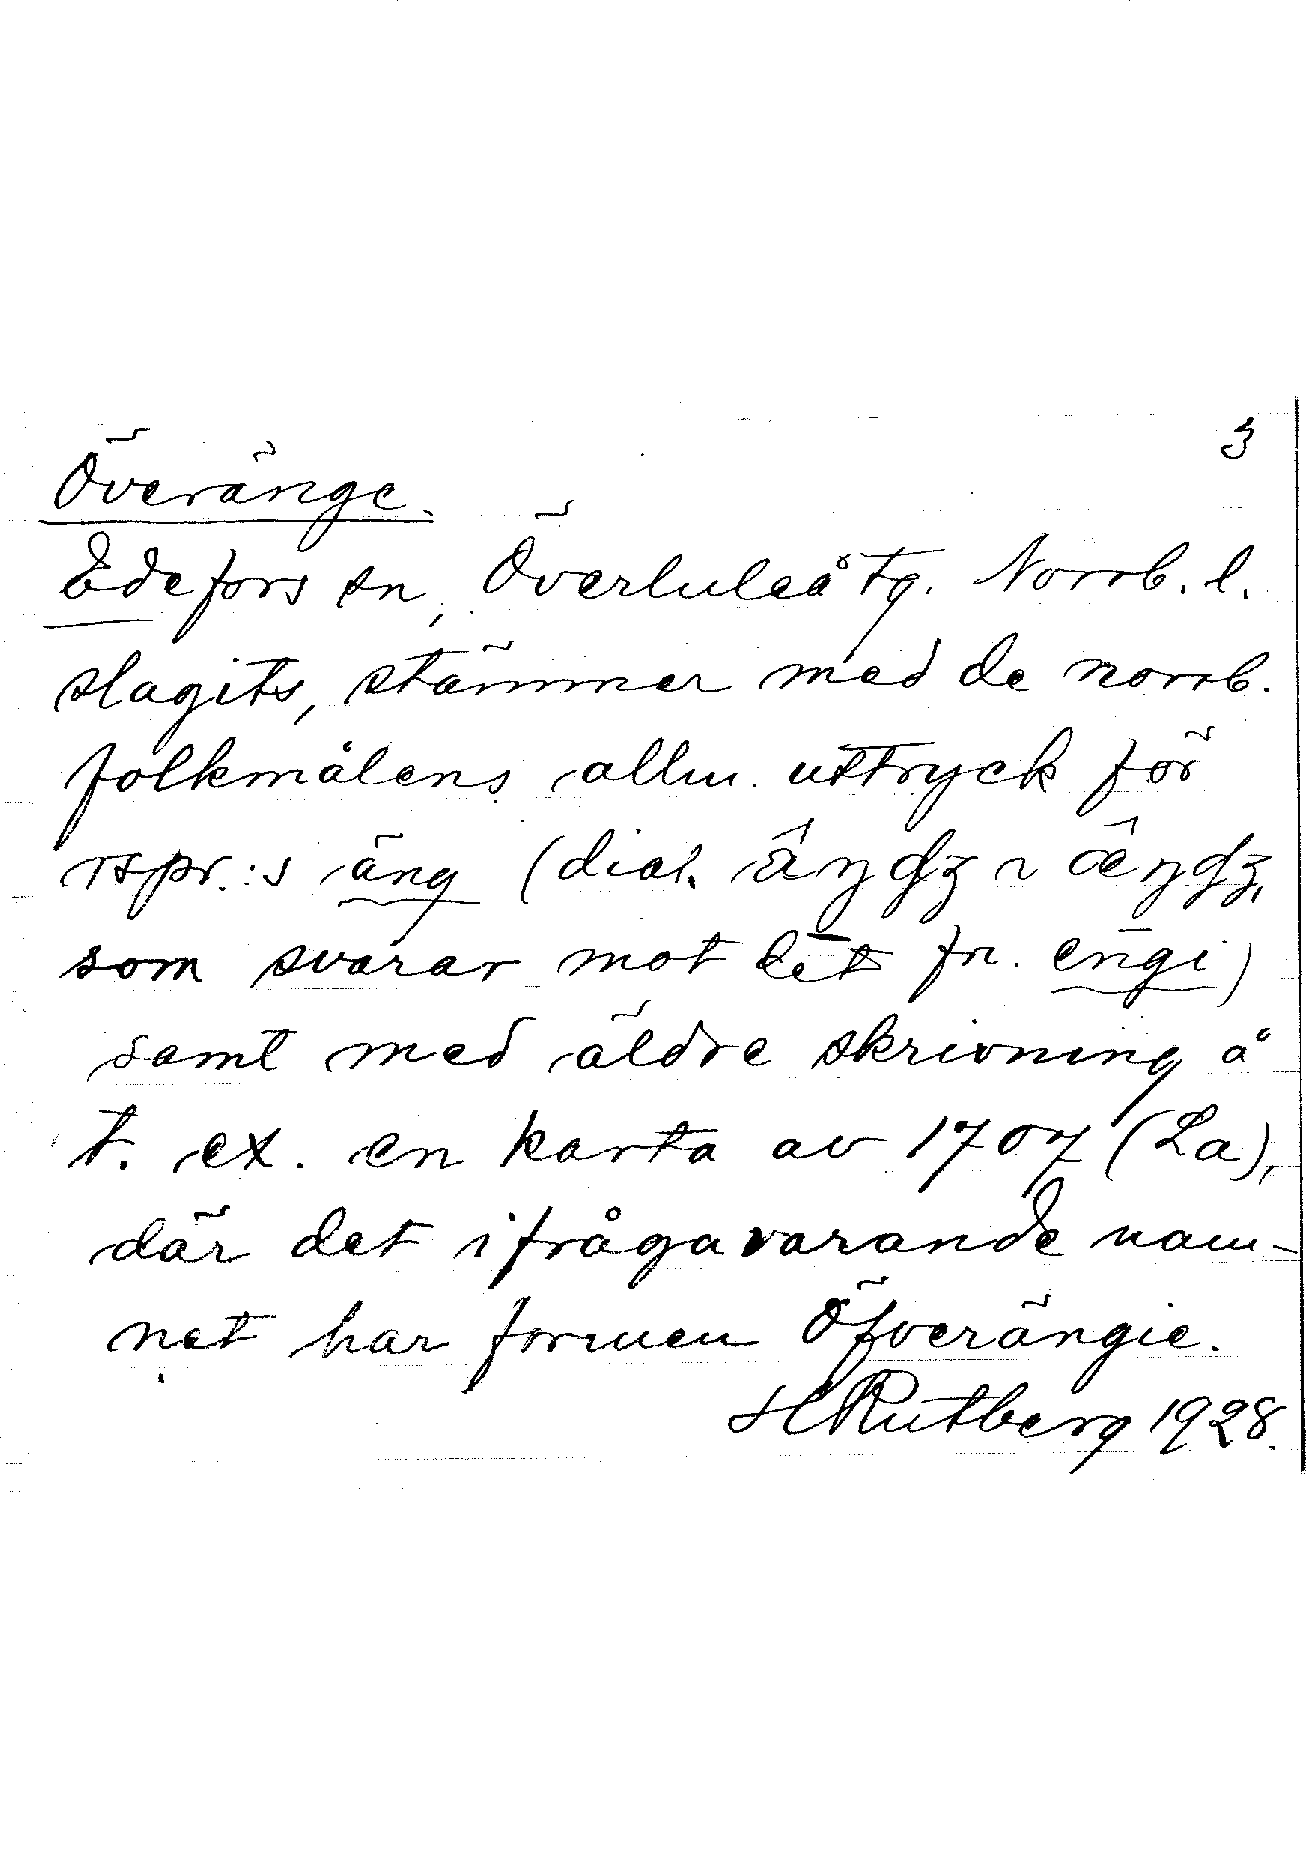 3
Överänge.
Edefors sn, Överluleå tg. Norrb. l.
slagits, stämmer med de norrb.
folkmålens allm. uttryck för
rspr.:s äng (dial.
som svarar mot det fn. engi)
samt med äldre skrivning å
t. ex. en karta av 1707 (La),
där det ifrågavarande nam-
net har formen Öfverängie.
H Rutberg 1928.